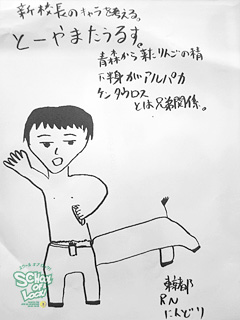 新校長のキャラを考える。
とーやまたうるす。
青森から来たりんごの精
下半身がアルパカ
ケンタウロス
とは兄弟関係。
SCHOOL
OF
LOCK!
東京都
RN
にんどり